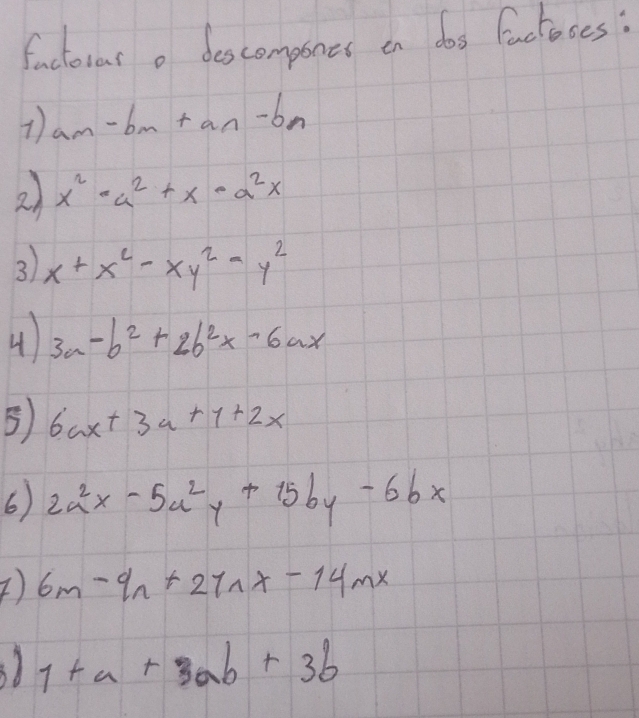 factorar o descomponer en dos factores:
1) am - bm + an - bn
2) x² - a² + x - a²x
3) x + x² - xy² - y²
4) 3a - b² + 2b²x - 6ax
5) 6ax + 3a + 1 + 2x
6) 2a²x - 5a²y + 15by - 6bx
7) 6m - 9n + 21nx - 14mx
8) 1 + a + 3ab + 3b